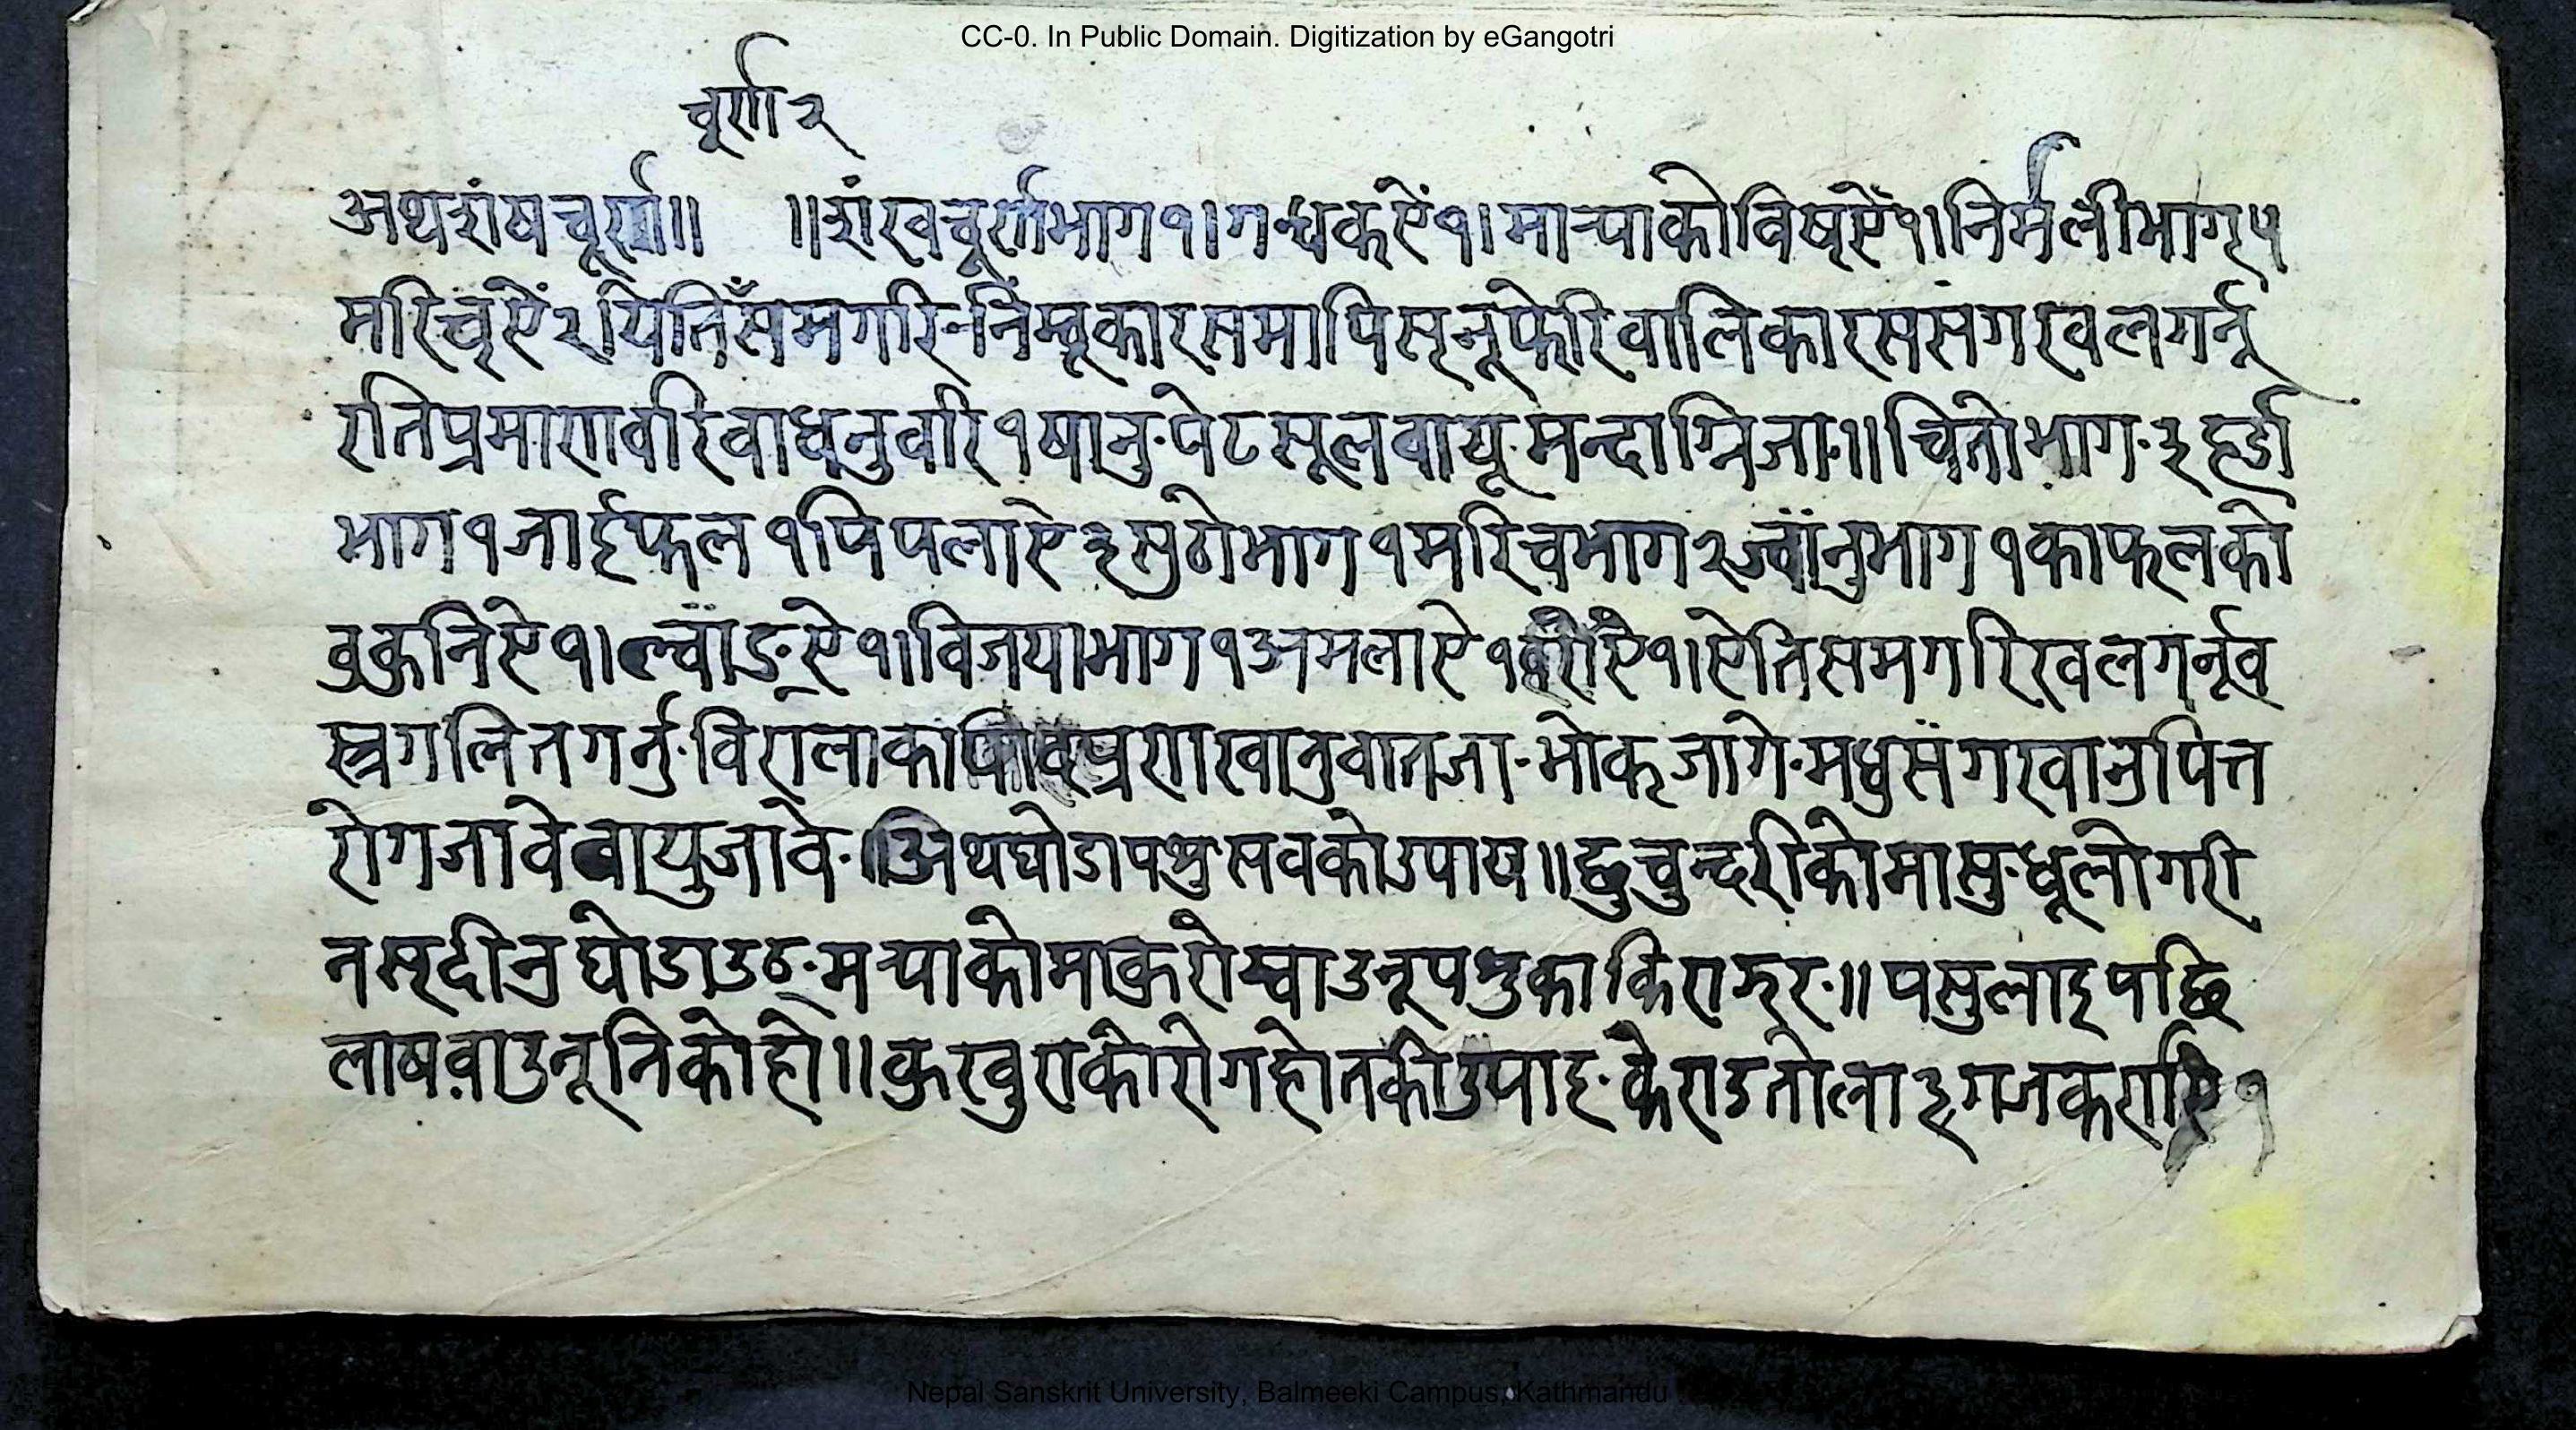 CC-0. In Public Domain. Digitization by eGangotri
चूर्ण २
अथशंषचूर्ण॥ ॥शंखचूर्णभाग१।गन्धकऐं१।माऱ्याकोविषऐं१।निर्मलीभाग५
मरिचऐं२।येतिसँमगरिनिंम्बूकारसमापिसनूफेरिवालिकारससंगखलगर्नू
रतिप्रमाणवरिवाधनुवरि१षानु·पेटसूलवायू·मन्दाग्निजा॥चितोभाग·३हर्डा
भाग१जाईफल१पिपलाऐ३सुठोभाग१मरिचभाग२ज्वांनुभाग१काफलको
वुकुनिऐ१।ल्वाङऐ१।विजयाभाग१अमलाऐ१ ऐतिसमगरिखलगर्नूव
स्त्रगलितगर्नु·विरालाका खानुवातजा·भोकजागे·मधुसंगखानुपित्त
रोगजावेवायुजावे·॥अथघोडापशुसवकोउपाय॥छुचुन्दरीकोमासु·धूलोगरी
नसदीनुघोडाउठ·मऱ्याकोमाकुरोख्वाउनूपशुकाकिराझर·॥पसुलाइपछि
लाषवाउनूनिकोहो॥कुरखुराकोरोगहोतकोउपाइ·केराउतोला३गजकरासि१
Nepal Sanskrit University, Balmeeki Campus, Kathmandu